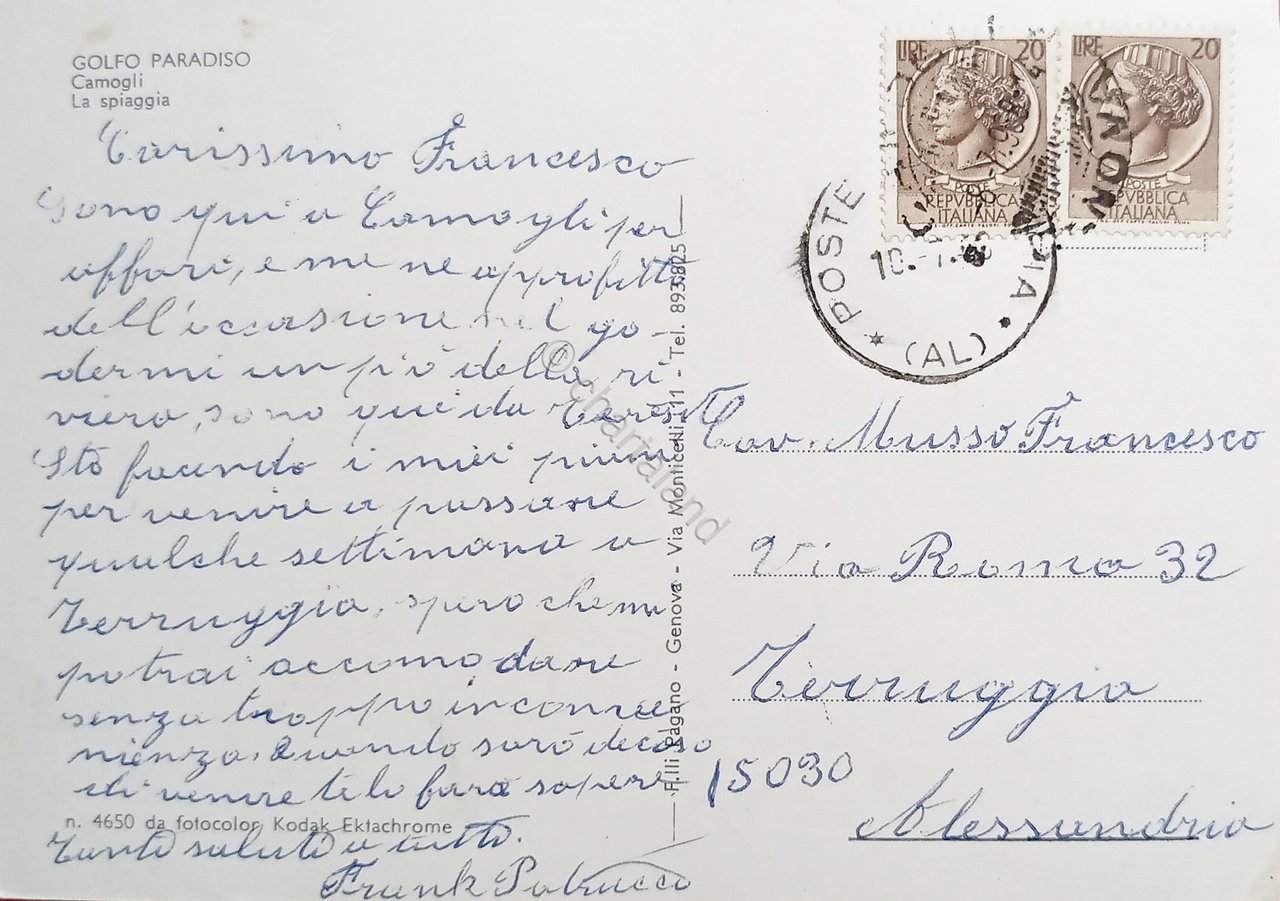 GOLFO PARADISO
Camogli
La spiaggia
Carissimo Francesco
Sono qui a Camogli per
affari, e me ne approfitto
dell'occasione nel go-
dermi un piò della ri
viera, sono qui da Teresa
Stò facendo i miei piani
per venire a passare
qualche settimana a
Terruggia, spero che mi
potrai accomodare
senza troppo inconve
nienza. Quando sarò deciso
di venire te lo farò sapere
n. 4650 da fotocolor Kodak Ektachrome
Tanti saluti a tutti.
Frank Patrucco
F.lli Pagano - Genova - Via Monticelli, 11 - Tel. 893.825
© chartaland
LIRE 20
POSTE
REPVBBLICA
ITALIANA
LIRE 20
POSTE
REPVBBLICA
ITALIANA
POSTE
(AL)
Cav. Musso Francesco
Via Roma 32
Terruggia
15030
Alessandria